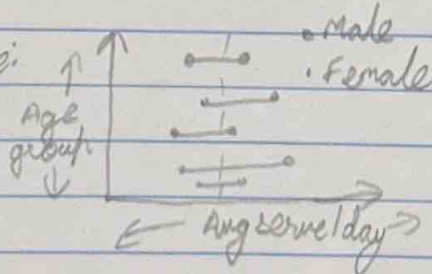 e:
• Male
• Female
Age
group
Avg serve/day